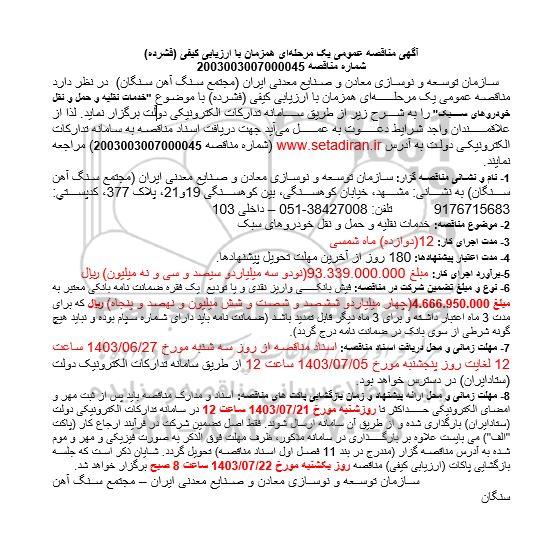 آگهی مناقصه عمومی یک مرحله‌ای همزمان با ارزیابی کیفی (فشرده)
شماره مناقصه 2003003007000045
سازمان توسعه و نوسازی معادن و صنایع معدنی ایران (مجتمع سنگ آهن سنگان) در نظر دارد
مناقصه عمومی یک مرحلــه‌ای همزمان با ارزیابی کیفی (فشرده) با موضوع "خدمات نقلیه و حمل و نقل
خودروهای سبــک" را به شــرح زیر از طریق سـامانه تدارکات الکترونیکی دولت برگزار نماید. لذا از
علاقمنــدان واجد شرایط دعــوت به عمــل می‌آید جهت دریافت اسناد مناقصه به سامانه تدارکات
الکترونیکی دولت به آدرس www.setadiran.ir (شماره مناقصه 2003003007000045) مراجعه
نمایند.
1- نام و نشانی مناقصه گزار: سازمان توسعه و نوسازی معادن و صنایع معدنی ایران (مجتمع سنگ آهن
سنگان) به نشانی: مشهد، خیابان کوهسنگی، بین کوهسنگی 19و21، پلاک 377، کدپستی:
9176715683 تلفن: 38427008-051 – داخلی 103
2- موضوع مناقصه: خدمات نقلیه و حمل و نقل خودروهای سبک
3- مدت اجرای کار: 12(دوازده) ماه شمسی
4- مدت اعتبار پیشنهادها: 180 روز از آخرین مهلت تحویل پیشنهادها.
5-برآورد اجرای کار: مبلغ 93.339.000.000(نودو سه میلیاردو سیصد و سی و نه میلیون) ریال
6- نوع و مبلغ تضمین شرکت در مناقصه: فیش بانکــی واریز نقدی و یا تودیع یک فقره ضمانت نامه بانکی معتبر به
مبلغ 4.666.950.000(چهار میلیاردو ششصد و شصت و شش میلیون و نهصد و پنجاه) ریال که برای
مدت 3 ماه اعتبار داشته و برای 3 ماه دیگر قابل تمدید باشد (ضمانت نامه باید دارای شماره سپام بوده و نباید هیچ
گونه شرطی از سوی بانک در ضمانت نامه درج گردد).
7- مهلت زمانی و محل دریافت اسناد مناقصه: اسناد مناقصه از روز سه شنبه مورخ 1403/06/27 ساعت
12 لغایت روز پنجشنبه مورخ 1403/07/05 ساعت 12 از طریق سامانه تدارکات الکترونیک دولت
(ستادایران) در دسترس خواهد بود.
8- مهلت زمانی و محل ارائه پیشنهاد و زمان بازگشایی پاکت های مناقصه: اسناد و مدارک مناقصه باید پس از ثبت مهر و
امضای الکترونیکی حــداکثر تا روزشنبه مورخ 1403/07/21 ساعت 12 در سامانه تدارکات الکترونیکی دولت
(ستادایران) بارگذاری شده و از طریق آن سامانه ارسال شوند. فقط اصل تضمین شرکت در فرآیند ارجاع کار (پاکت
"الف") می بایست علاوه بر بارگــذاری در سامانه مذکور، ظرف مهلت فوق الذکر به صورت فیزیکی و مهر و موم
شده به آدرس مناقصه گزار (مندرج در بند 11 فصل اول اسناد مناقصه) تحویل گردد. شایان ذکر است که جلسه
بازگشایی پاکات (ارزیابی کیفی) مناقصه روز یکشنبه مورخ 1403/07/22 ساعت 8 صبح برگزار خواهد شد.
سـازمان توسـعه و نوسازی معادن و صنایع معدنی ایران – مجتمع سنگ آهن
سنگان